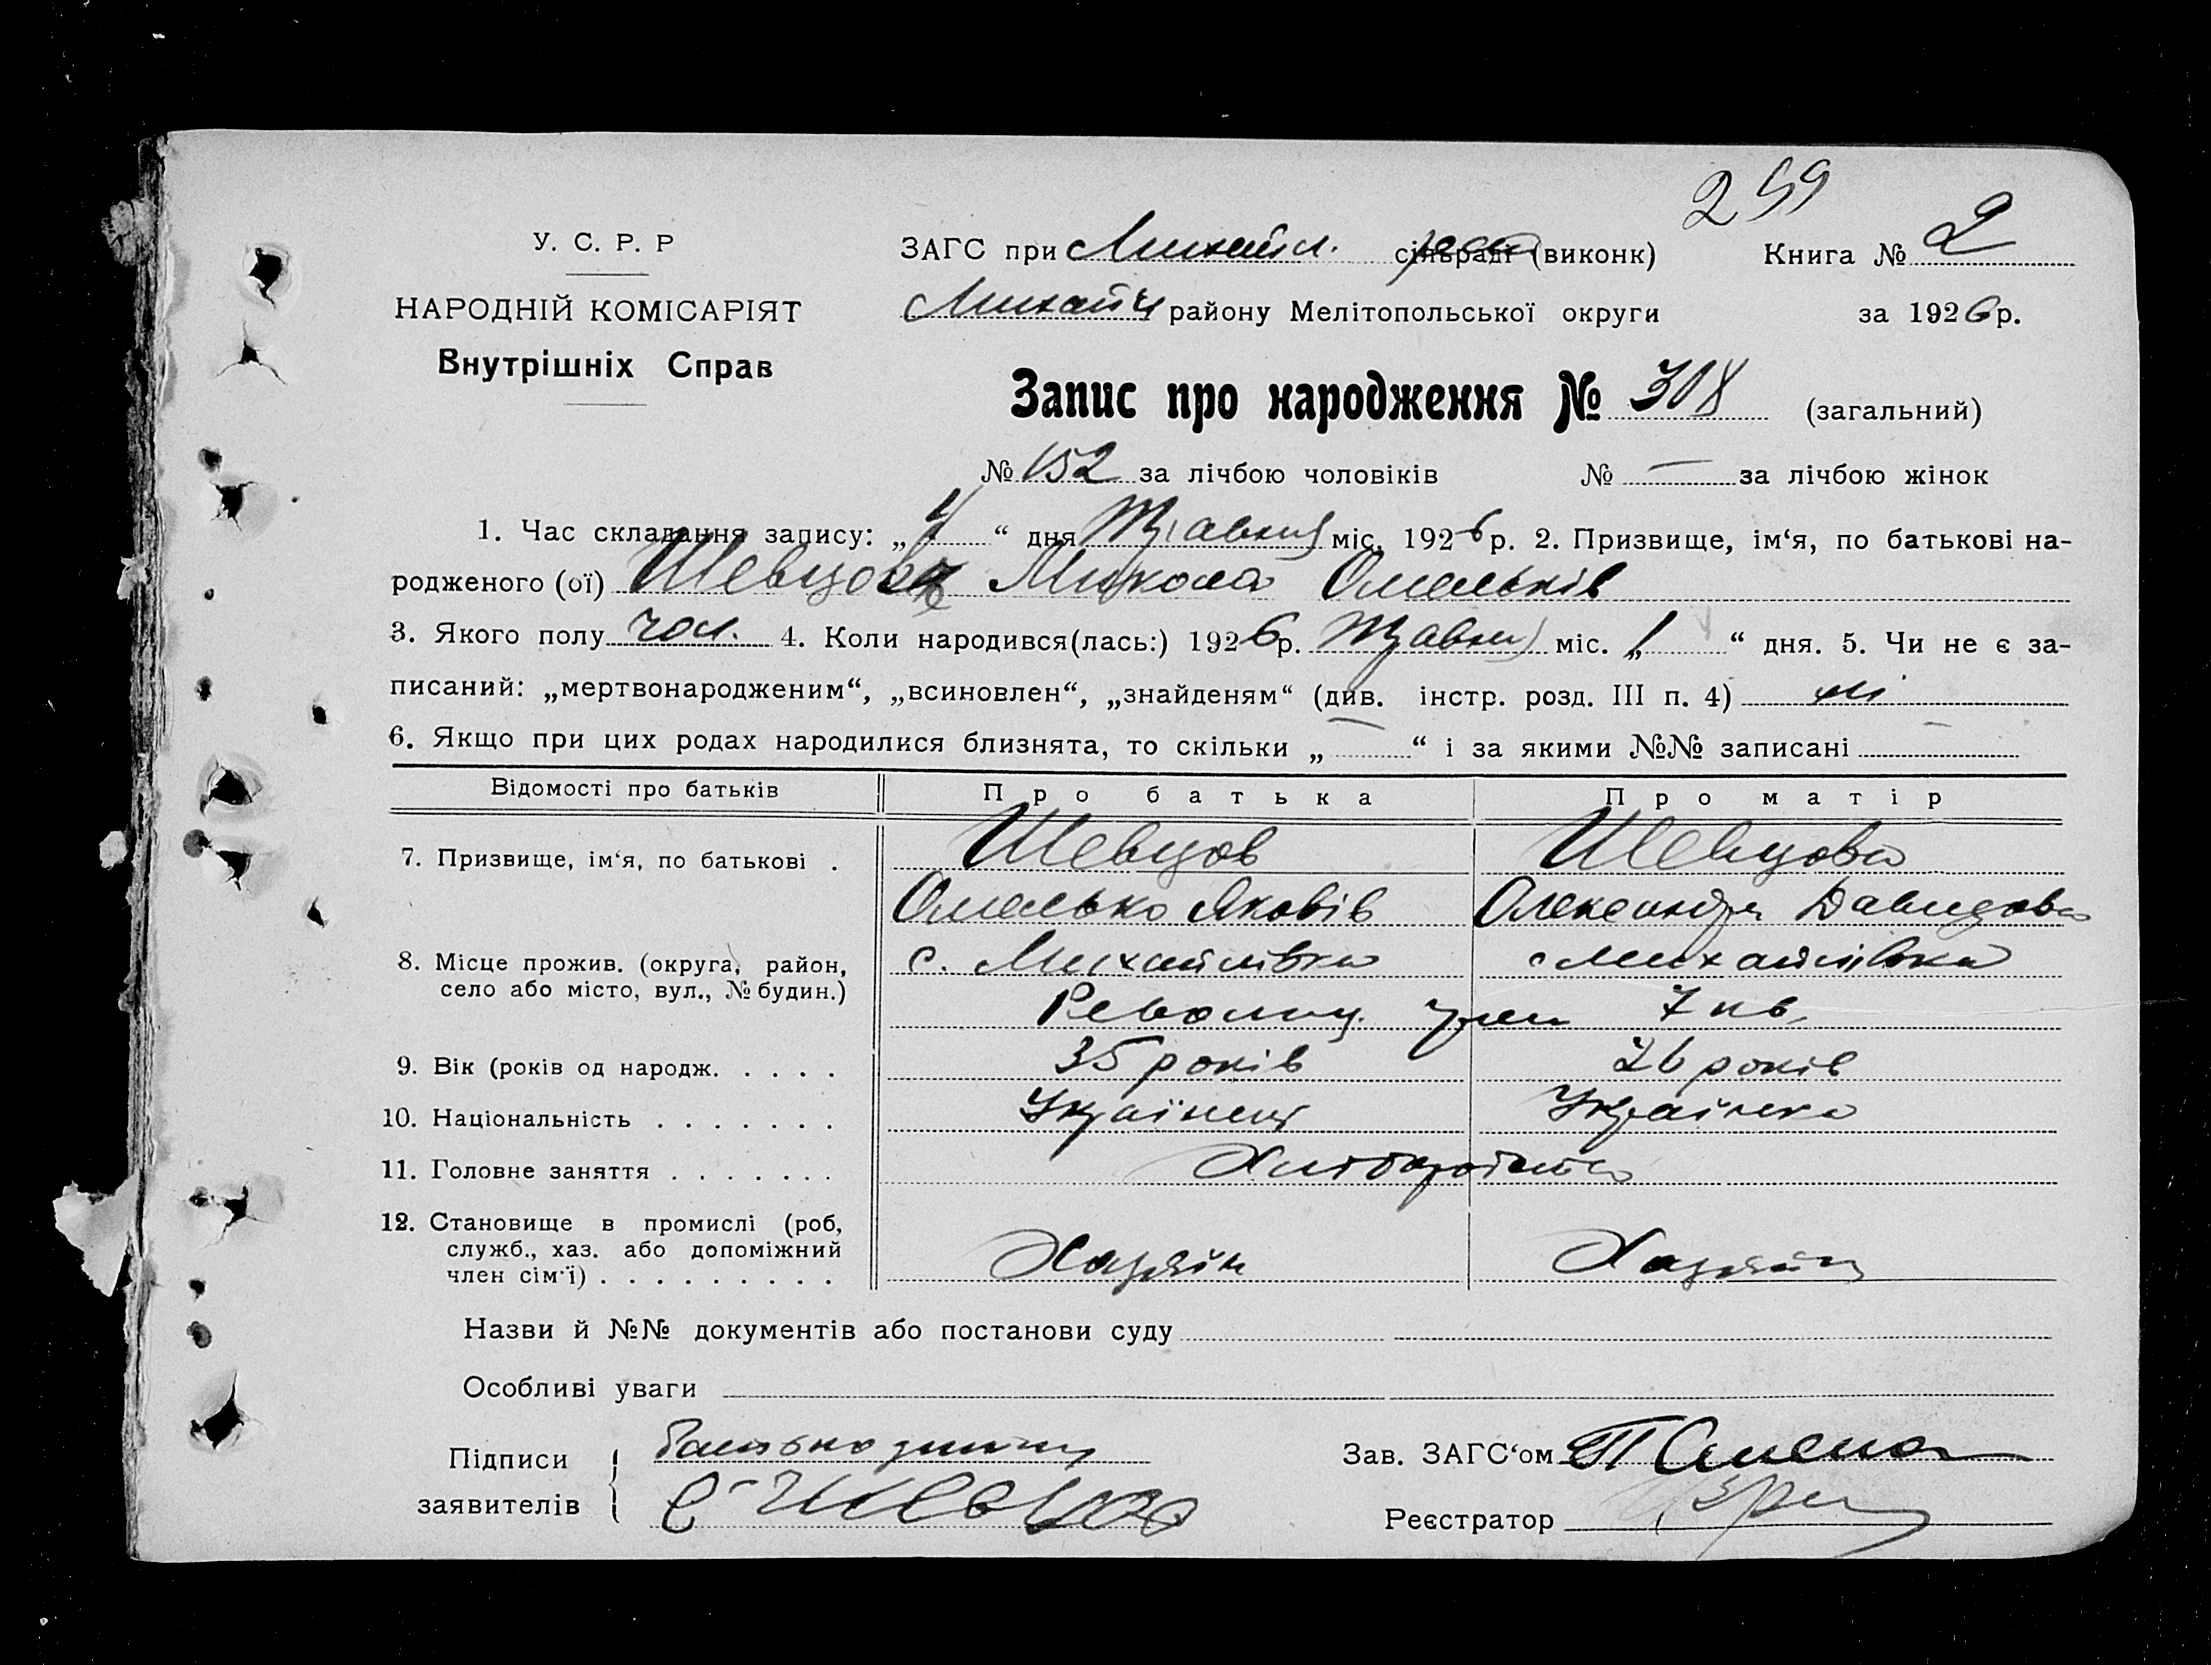 299
У. С. Р. Р
ЗАГС при Михайл. сільраді (виконк) Книга № 2
НАРОДНІЙ КОМІСАРІЯТ
Михайл району Мелітопольської округи за 1926 р.
Внутрішніх Справ
Запис про народження № 308 (загальний)
№ 152 за лічбою чоловіків № — за лічбою жінок
1. Час складання запису: „4“ дня Травня міс. 1926 р. 2. Призвище, ім‘я, по батькові на-
родженого (ої) Шевцов Микола Омельків
3. Якого полу чол. 4. Коли народився(лась:) 1926 р. Травня міс. „1“ дня. 5. Чи не є за-
писаний: „мертвонародженим“, „всиновлен“, „знайденям“ (див. інстр. розд. III п. 4) ні
6. Якщо при цих родах народилися близнята, то скільки „—“ і за якими №№ записані —
Відомості про батьків Про батька Про матір
7. Призвище, ім‘я, по батькові . Шевцов Шевцова
Омелько Яковів Олександра Давидова
8. Місце прожив. (округа, район, с. Михайлівка с Михайлівка
село або місто, вул., № будин.)
Революц. 7 кв.
9. Вік (років од народж. . . . . 35 років 26 років
10. Національність . . . . . . . Українец Українка
11. Головне заняття . . . . . . . Хліборобство
12. Становище в промислі (роб,
служб., хаз. або допоміжний Хазяїн Хазяйка
член сім‘ї) . . . . . . . . .
Назви й №№ документів або постанови суду
Особливі уваги
Підписи Батько дитини Зав. ЗАГС‘ом
заявителів Е Шевцов Реєстратор